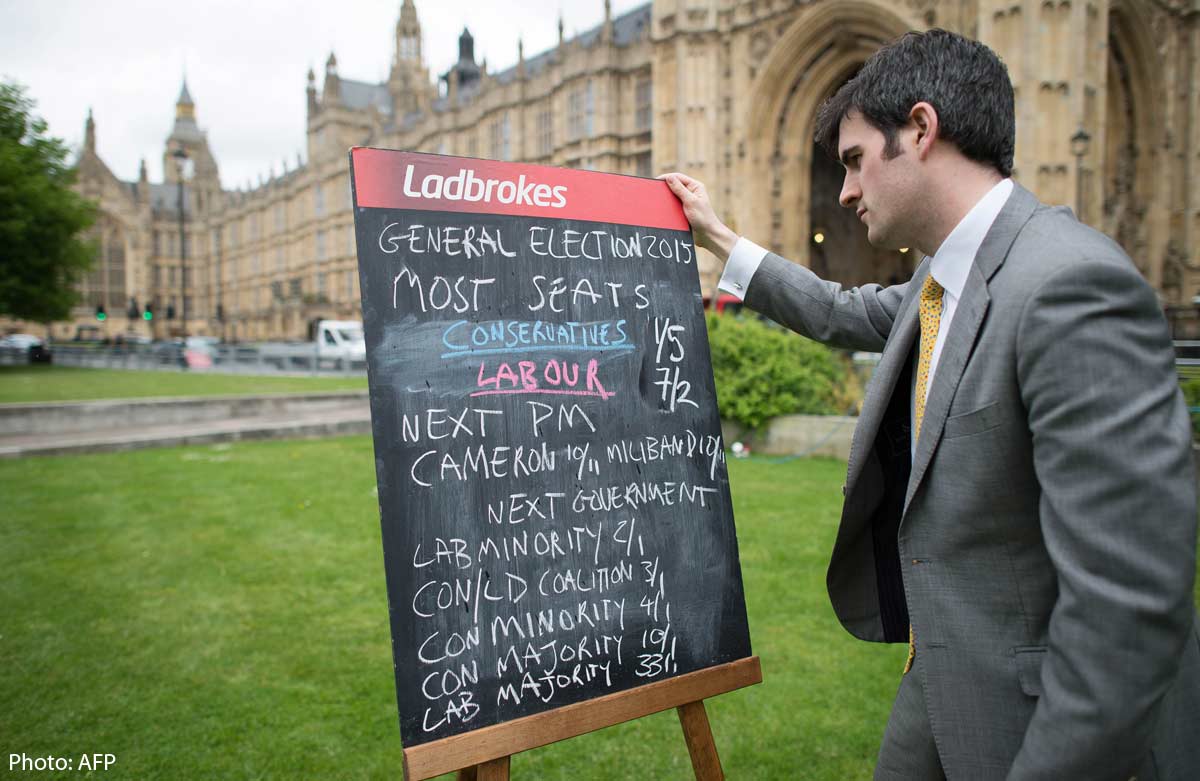 Ladbrokes
GENERAL ELECTION 2015
MOST SEATS
CONSERVATIVES 1/5
LABOUR 7/2
NEXT PM
CAMERON 10/11 MILIBAND 10/11
NEXT GOVERNMENT
LAB MINORITY 2/1
CON/LD COALITION 3/1
CON MINORITY 4/1
CON MAJORITY 10/1
LAB MAJORITY 33/1
Photo: AFP